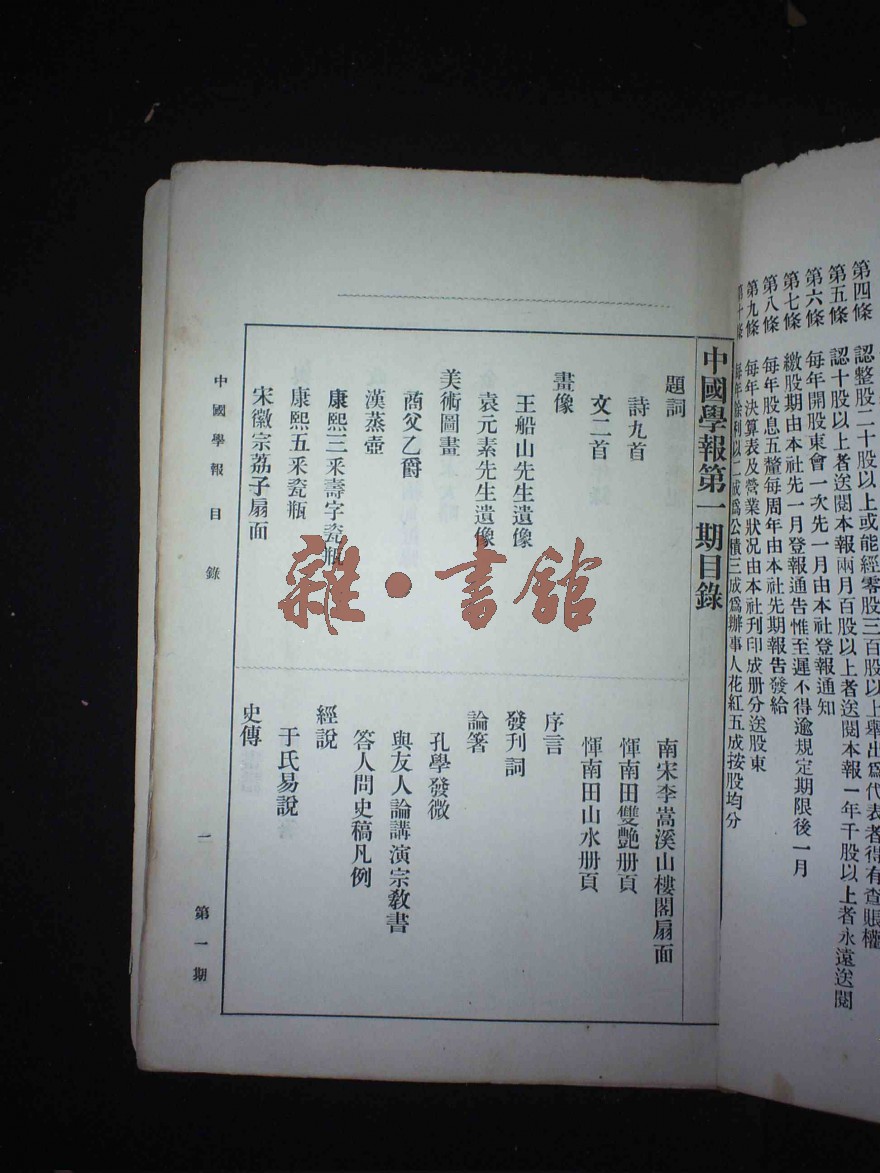 第四條　認整股二十股以上或能經零股三百股以上舉出爲代表者得有查賬權
第五條　認十股以上者送閱本報兩月百股以上者送閱本報一年千股以上者永遠送閱
第六條　每年開股東會一次先一月由本社登報通知
第七條　繳股期由本社先一月登報通告惟至遲不得逾規定期限後一月
第八條　每年股息五釐每周年由本社先期報告發給
第九條　每年決算表及營業狀況由本社刊印成册分送股東
第十條　每年餘利以二成爲公積三成爲辦事人花紅五成按股均分
中國學報第一期目錄
題詞
詩九首
文二首
畫像
王船山先生遺像
袁元素先生遺像
美術圖畫
商父乙爵
漢蒸壺
康熙三釆壽字瓷瓶
康熙五釆瓷瓶
宋徽宗荔子扇面
南宋李嵩溪山樓閣扇面
惲南田雙艷册頁
惲南田山水册頁
序言
發刊詞
論箸
孔學發微
與友人論講演宗敎書
答人問史稿凡例
經說
于氏易說
史傳
中國學報　目錄　二　第一期
雜·書館